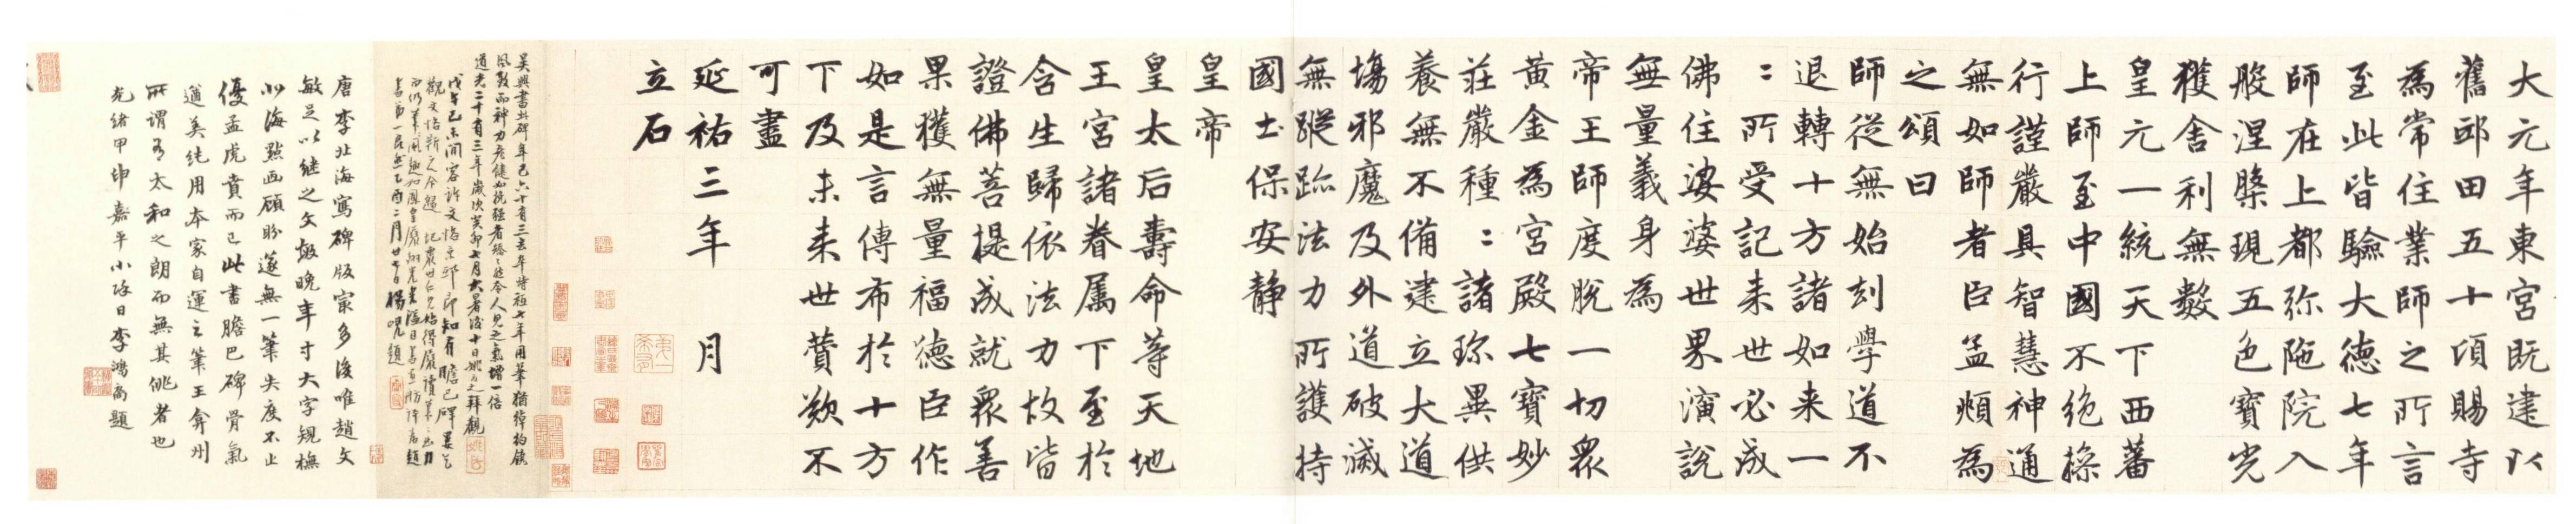 大元年東宮既建以
舊邸田五十頃賜寺
為常住業師之所言
至此皆驗大德七年
師在上都弥陁院入
般涅槃現五色寶光
獲舍利無數
皇元一統天下西蕃
上師至中國不絕操
行謹嚴具智慧神通
無如師者臣孟頫為
之頌曰
師從無始刼學道不
退轉十方諸如来一
〻所受記来世必成
佛住娑婆世界演說
無量義身為
帝王師度脫一切眾
黃金為宮殿七寶妙
莊嚴種〻諸珎異供
養無不備建立大道
場邪魔及外道破滅
無蹤跡法力所護持
國土保安靜
皇帝
皇太后壽命等天地
王宮諸眷属下至於
含生歸依法力故皆
證佛菩提成就眾善
果獲無量福德臣作
如是言傳布於十方
下及未来世贊歎不
可盡
延祐三年　月
立石
吳興書此碑年已六十有三去卒時祗七年用筆猶
風致而神力老健如挽强者令人見之氣增一倍
道光二十有三年歲次癸卯七月大暑後十日姚元之拜觀
戊午己未間客許文恪京邸即知有膽巴碑
書第一已丑乙酉二月廿七日楊峴題
唐李北海寫碑版最多後唯趙文
敏足以繼之文敏晚年寸大字規橅
北海點画顧盼遂無一筆失度不止
優孟虎賁而已此書膽巴碑骨氣
遒美純用本家自運之筆王弇州
所謂有太和之朗而無其佻者也
光緒甲申嘉平小除日李鴻裔題